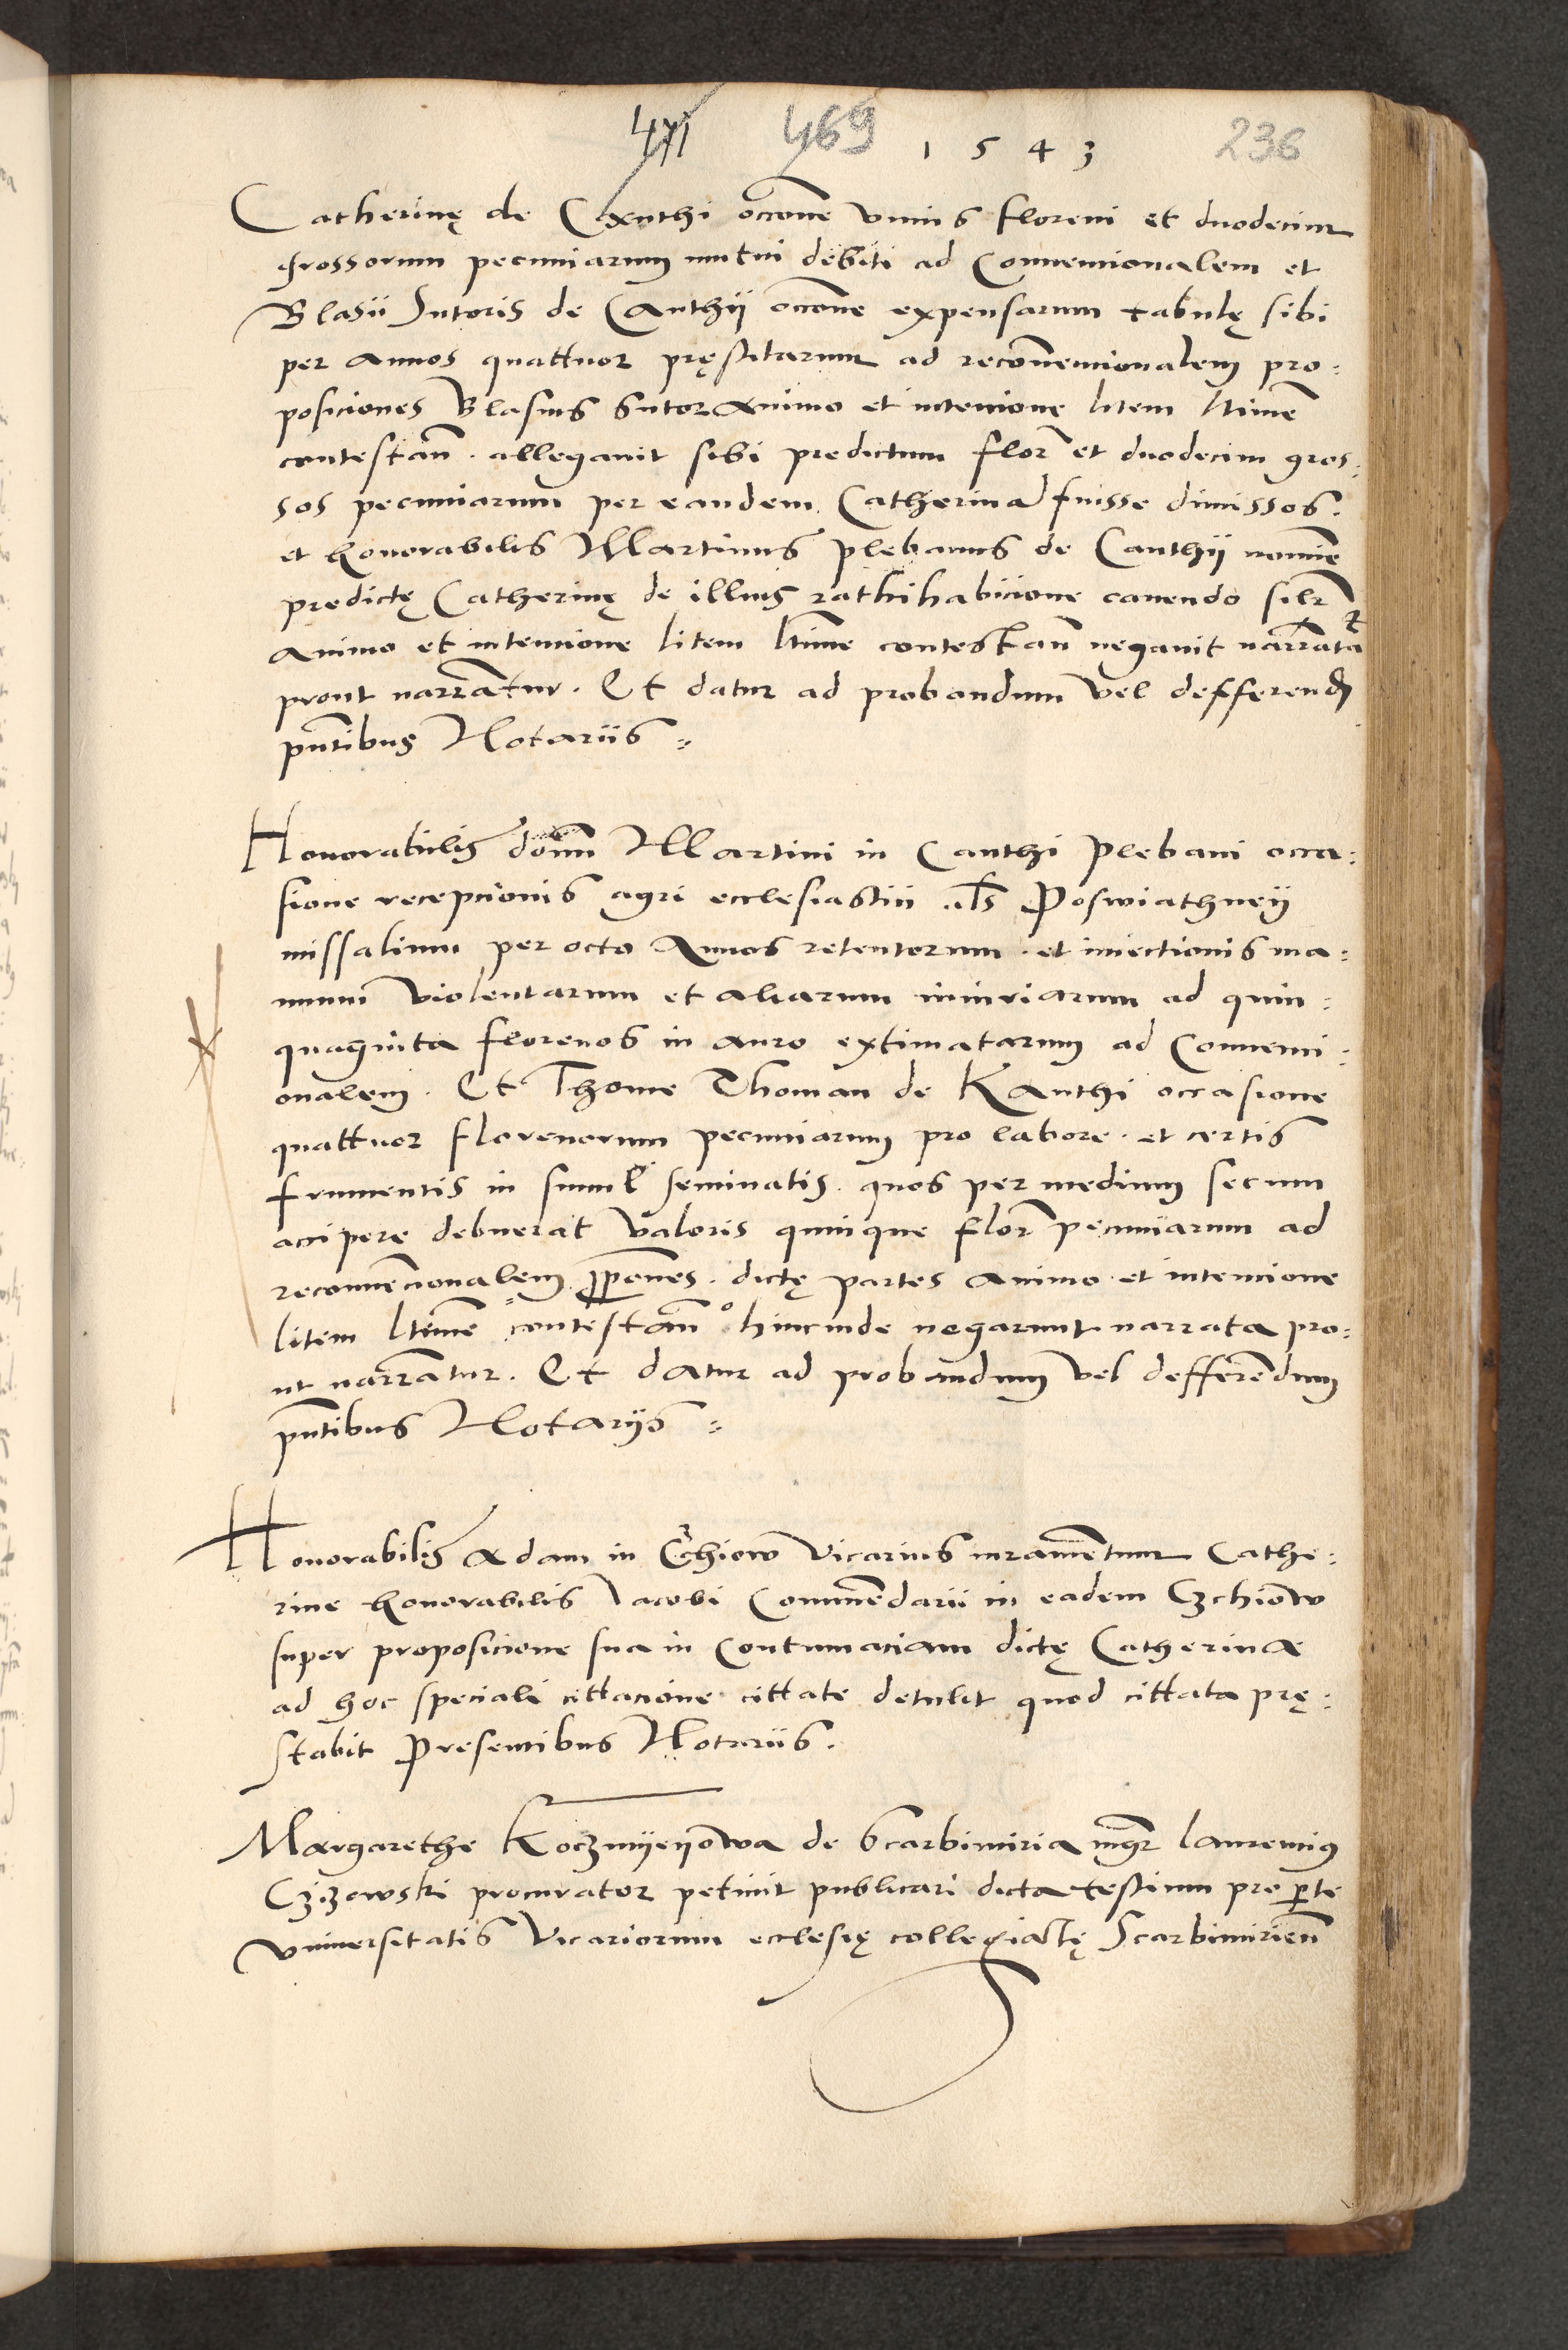 471 469 1543 236
Catherinę de Canthi occõne vnius floreni et duodecim
grossorum pecuniarum mutui debiti ad Conuencionalem et
Blasii Sutoris de Canthij occõne expensarum tabulę sibi
per annos quattuor pręstitarum ad reconuencionalem pro:
posiciones Blasius Sutor animo et intencione litem ltime
contestan̄. allegauit sibi predictum flor̃ et duodecim gros:
sos pecuniarum per eandem Catherina fuisse dimissos.
et honorabilis Martinus plebanus de Canthij nomine
predictę Catherinę de illius rathihabicione cauendo silr̃
animo et intencione litem ltime contestan̄ negauit narrata
prout narrantur. Et datur ad probandum vel defferend
pn̄tibus Notariis :
Honorabilis dom̃ Martini in Canthi Plebani occa:
sione recepcionis agri ecclesiastici als Poswiathneij
missalium per octo Annos retentorum. et iniectionis ma:
nuum violentarum et aliarum iniuriarum ad quin:
quaginta florenos in auro extimatarum ad Conuenci:
onalem. Et Thome Thoman de Kanthi occasione
quattuor florenorum pecuniarum pro labore. et certis
frumentis in simul seminatis. quos per medium secum
accipere debuerat valoris quinque flor̃ pecuniarum ad
reconuencionalem ppōnes. dictę partes animo et intencione
litem ltime contestan̄ hincinde negarunt narrata pro:
ut narrantur. Et datur ad probandum vel defferendum
pn̄tibus Notarijs :
Honorabilis Adam in Czchiow Vicarius iuramentum Cathe:
rine honorabilis Iacobi Commendarii in eadem Czchiow
super proposicione sua in Contumaciam dictę Catherinæ
ad hoc speciali cittacione cittate detulit quod cittata prę:
stabit Presentibus Notariis.
Margarethe Koczmijeyowa de Scarbimiria mgr̃ Laurencius
Czizowski procurator petiuit publicari dicta testium pro parte
vniuersitatis Vicariorum ecclesię collegiatę Scarbimirien̄